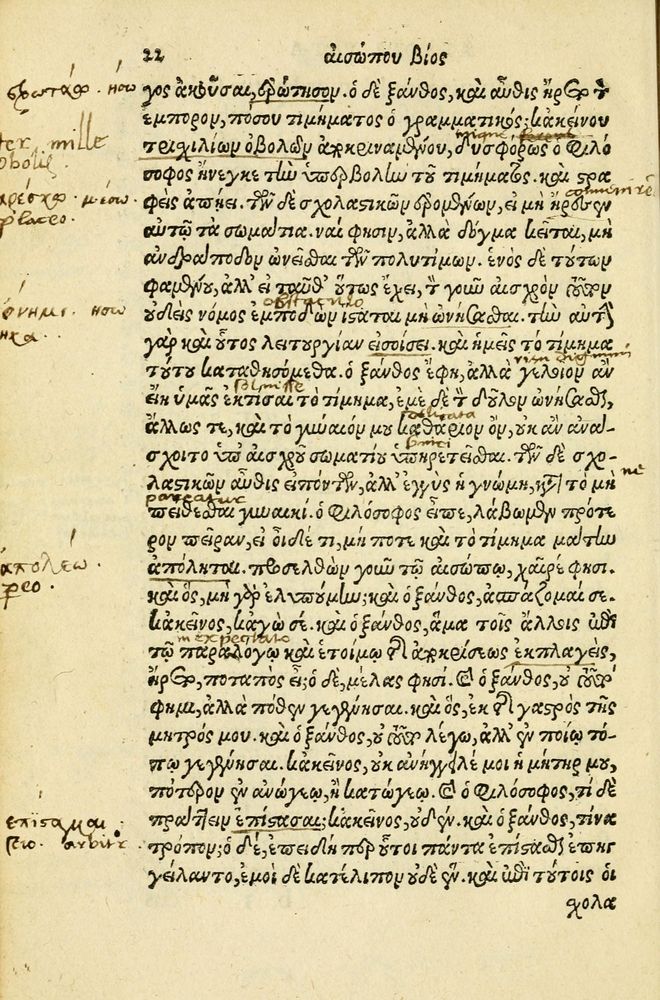 22 αἰσώπου βίος
γος ἀκοῦσαι, ἐρώτησον. ὁ δὲ ξάνθος, καὶ αὖθις ἤρετο τ̀
ἔμπορον, πόσου τιμήματος ὁ γραμματικός; κἀκείνου
τριχιλίων ὀβολῶν ἀποκριναμένου, δυσφόρως ὁ φιλό
σοφος ἤνεγκε τὴν ὑπερβολὴν τοῦ τιμήματος. καὶ στρα
φεὶς ἀπῄει. τῶν δὲ σχολαστικῶν ἐρομένων, εἰ μὴ ἤρεσεν
αὐτῷ τὰ σωμάτια. ναί φησιν, ἀλλὰ δόγμα κεῖται, μὴ
ἀνδράποδον ὠνεῖσθαι τῶν πολυτίμων. ἑνὸς δὲ τούτων
φαμένου, ἀλλ' εἰ ταῦθ' οὕτως ἔχει, τ̀ γοῦν αἰσχρὸν τοῦτον
οὐδεὶς νόμος ἐμποδὼν ἵσταται μὴ ὠνήσασθαι. τὴν αὐτὴν
γὰρ καὶ οὗτος λειτουργίαν εἰσοίσει. καὶ ἡμεῖς τὸ τίμημα
τούτου καταθησόμεθα. ὁ ξάνθος ἔφη, ἀλλὰ γελοῖον ἂν
εἴη ὑμᾶς ἐκτῖσαι τὸ τίμημα, ἐμὲ δὲ τ̀ δοῦλον ὠνήσασθαι,
ἄλλως τε, καὶ τὸ γύναιόν μου καθάριον ὄν, οὐκ ἂν ἀνά-
σχοιτο ὑπ' αἰσχροῦ σωματίου ὑπηρετεῖσθαι. τῶν δὲ σχο-
λαστικῶν αὖθις εἰπόντων, ἀλλ' ἐγγὺς ἡ γνώμη, κατὰ τὸ μὴ
πείθεσθαι γυναικί. ὁ φιλόσοφος εἶπε, λάβωμεν πρότε
ρον πεῖραν, εἰ οἶδέ τι, μή ποτε καὶ τὸ τίμημα μάτην
ἀπόληται. προσελθὼν γοῦν τῷ αἰσώπῳ, χαῖρέ φησι.
καὶ ὅς, μὴ γὰρ ἐλυπούμην; καὶ ὁ ξάνθος, ἀσπάζομαί σε.
κἀκεῖνος, κἀγώ σέ. καὶ ὁ ξάνθος, ἅμα τοῖς ἄλλοις ἐπὶ
τῷ παραλόγῳ καὶ ἑτοίμῳ τῆς ἀποκρίσεως ἐκπλαγεὶς,
ἤρετο, ποταπὸς εἶ; ὁ δὲ, μέλας φησί. καὶ ὁ ξάνθος, οὐ τοῦτό
φημι, ἀλλὰ πόθεν γεγέννησαι. καὶ ὅς, ἐκ τῆς γαστρὸς τῆς
μητρός μου. καὶ ὁ ξάνθος, οὐ τοῦτο λέγω, ἀλλ' ἐν ποίῳ τό-
πῳ γεγέννησαι. κἀκεῖνος, οὐκ ἀνήγγειλέ μοι ἡ μήτηρ μου,
πότερον ἐν ἀνώγεῳ, ἢ κατώγεῳ. καὶ ὁ φιλόσοφος, τί δὲ
πράττειν ἐπίστασαι; κἀκεῖνος, οὐδέν. καὶ ὁ ξάνθος, τίνα
τρόπον; ὁ δέ, ἐπειδήπερ οὗτοι πάντα ἐπίστασθαι ἐπηγ
γείλαντο, ἐμοὶ δὲ κατέλιπον οὐδέν. καὶ ἐπὶ τούτοις οἱ
σχολα
ter mille
oboli.
placeo.
ἀπολέω.
pereo.